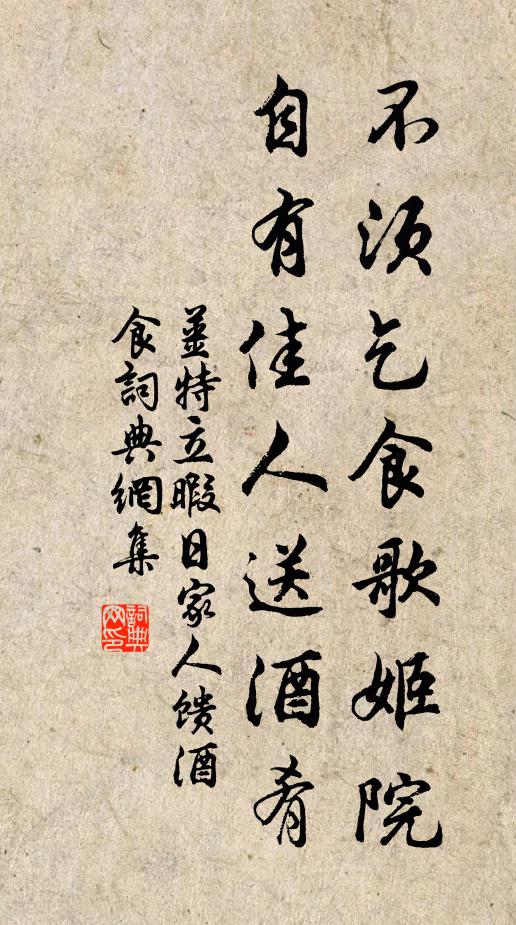 不須乞食歌姬院
自有佳人送酒肴
姜特立暇日家人馈酒
食詞典網集
詞典網印